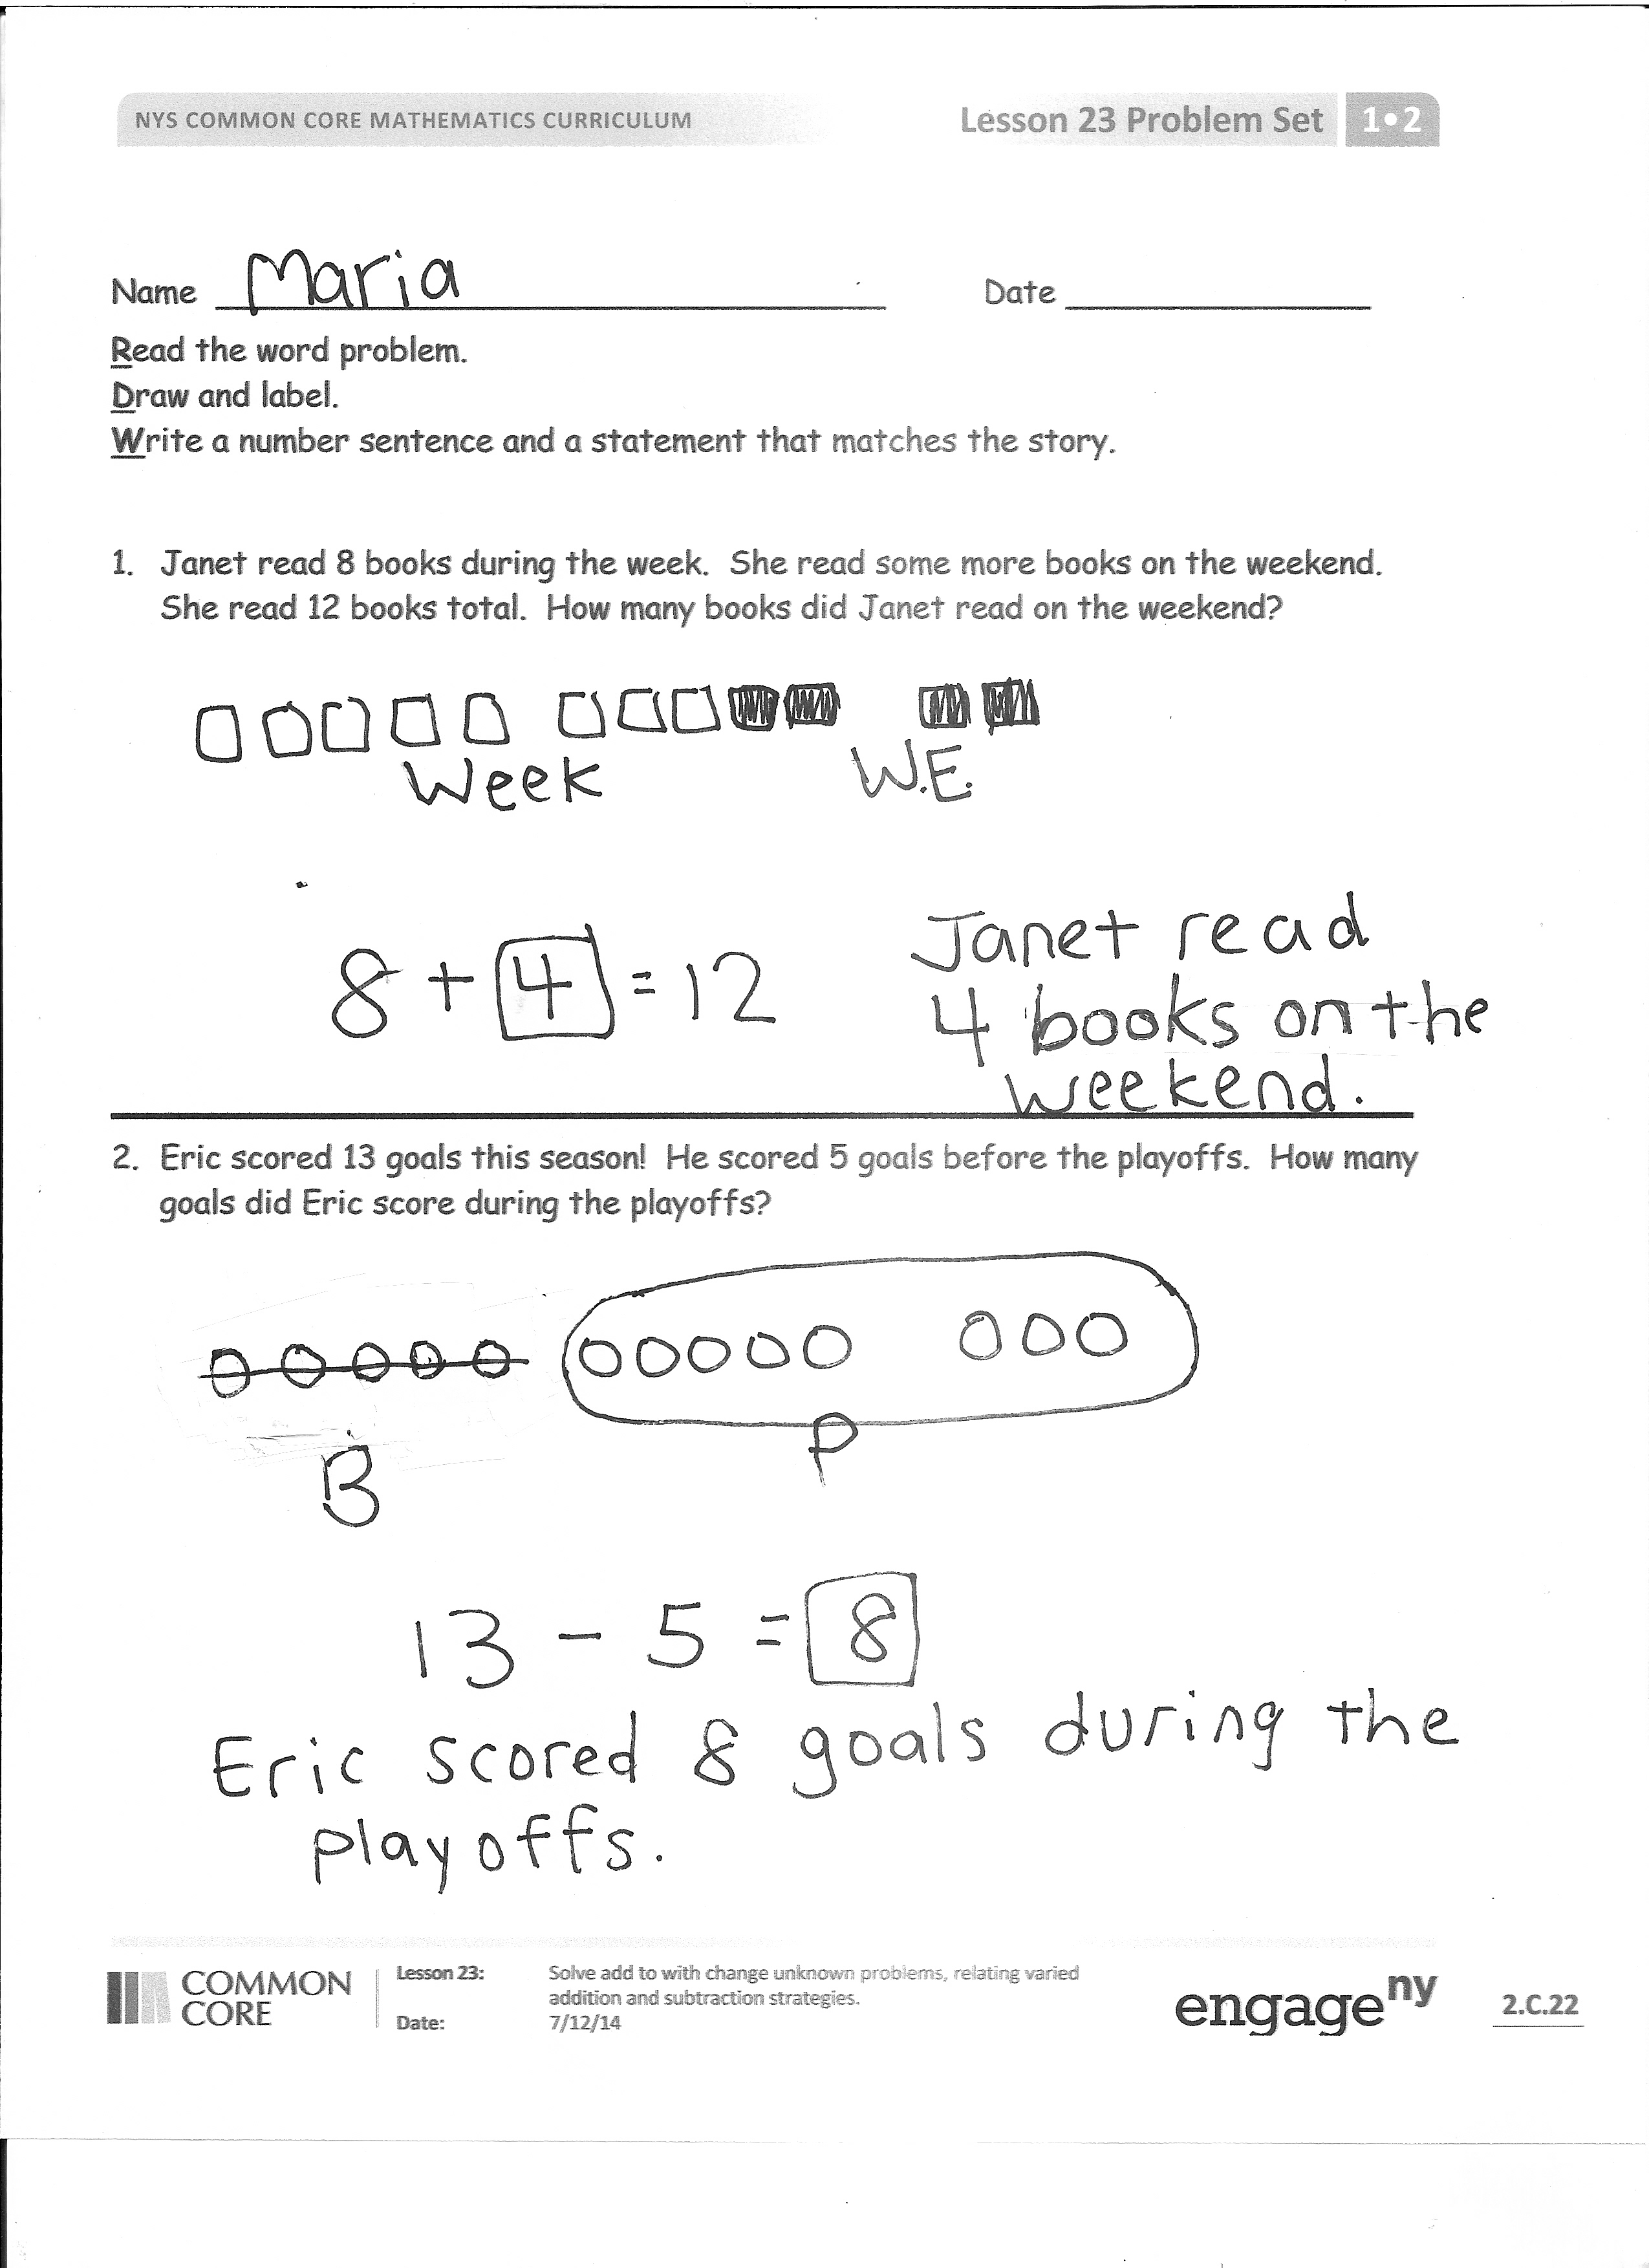 NYS COMMON CORE MATHEMATICS CURRICULUM Lesson 23 Problem Set 1•2
Name Maria Date
Read the word problem.
Draw and label.
Write a number sentence and a statement that matches the story.
1. Janet read 8 books during the week. She read some more books on the weekend.
She read 12 books total. How many books did Janet read on the weekend?
Week W.E.
8 + 4 = 12
Janet read
4 books on the
weekend.
2. Eric scored 13 goals this season! He scored 5 goals before the playoffs. How many
goals did Eric score during the playoffs?
B P
13 - 5 = 8
Eric scored 8 goals during the
playoffs.
COMMON
CORE
Lesson 23: Solve add to with change unknown problems, relating varied
addition and subtraction strategies.
Date: 7/12/14
engage ny
2.C.22